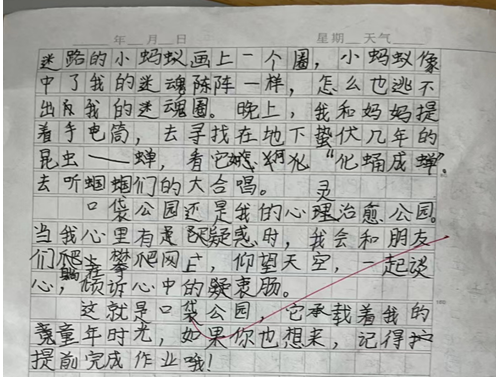 年 月 日 星期 天气
迷路的小蚂蚁画上一个圈，小蚂蚁像
中了我的迷魂阵一样，怎么也逃不
出我的迷魂圈。晚上，我和妈妈提
着手电筒，去寻找在地下蛰伏几年的
昆虫——蝉，看它如何"化蛹成蝉"，
去听蝈蝈们的大合唱。
口袋公园还是我的心灵治愈公园。
当我心里有疑惑时，我会和朋友
们躺在攀爬网上，仰望天空，一起谈
心，倾诉心中的衷肠。
这就是口袋公园，它承载着我的
童年时光，如果你也想来，记得
提前完成作业哦！